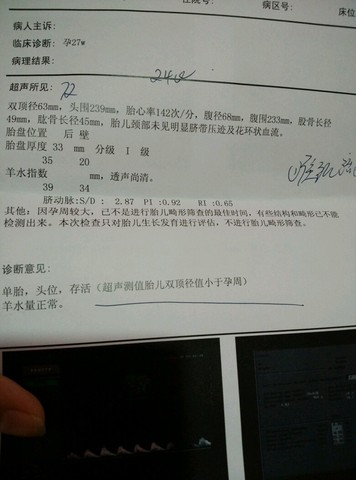 病区号:
床位
病人主诉:
临床诊断: 孕27w
病理结果:
超声所见:
双顶径63mm, 头围239mm, 胎心率142次/分, 腹径68mm, 腹围233mm, 股骨长径
49mm, 肱骨长径45mm, 胎儿颈部未见明显脐带压迹及花环状血流。
胎盘位置 后 壁
胎盘厚度 33 mm 分级 I 级
35 20
羊水指数 mm, 透声尚清。
39 34
脐动脉:S/D : 2.87 PI :0.92 RI :0.65
其他: 因孕周较大, 已不是进行胎儿畸形筛查的最佳时间, 有些结构和畸形已不能
检测出来。本次检查只对胎儿生长发育进行评估, 不进行胎儿畸形筛查。
诊断意见:
单胎, 头位, 存活 (超声测值胎儿双顶径值小于孕周)
羊水量正常。